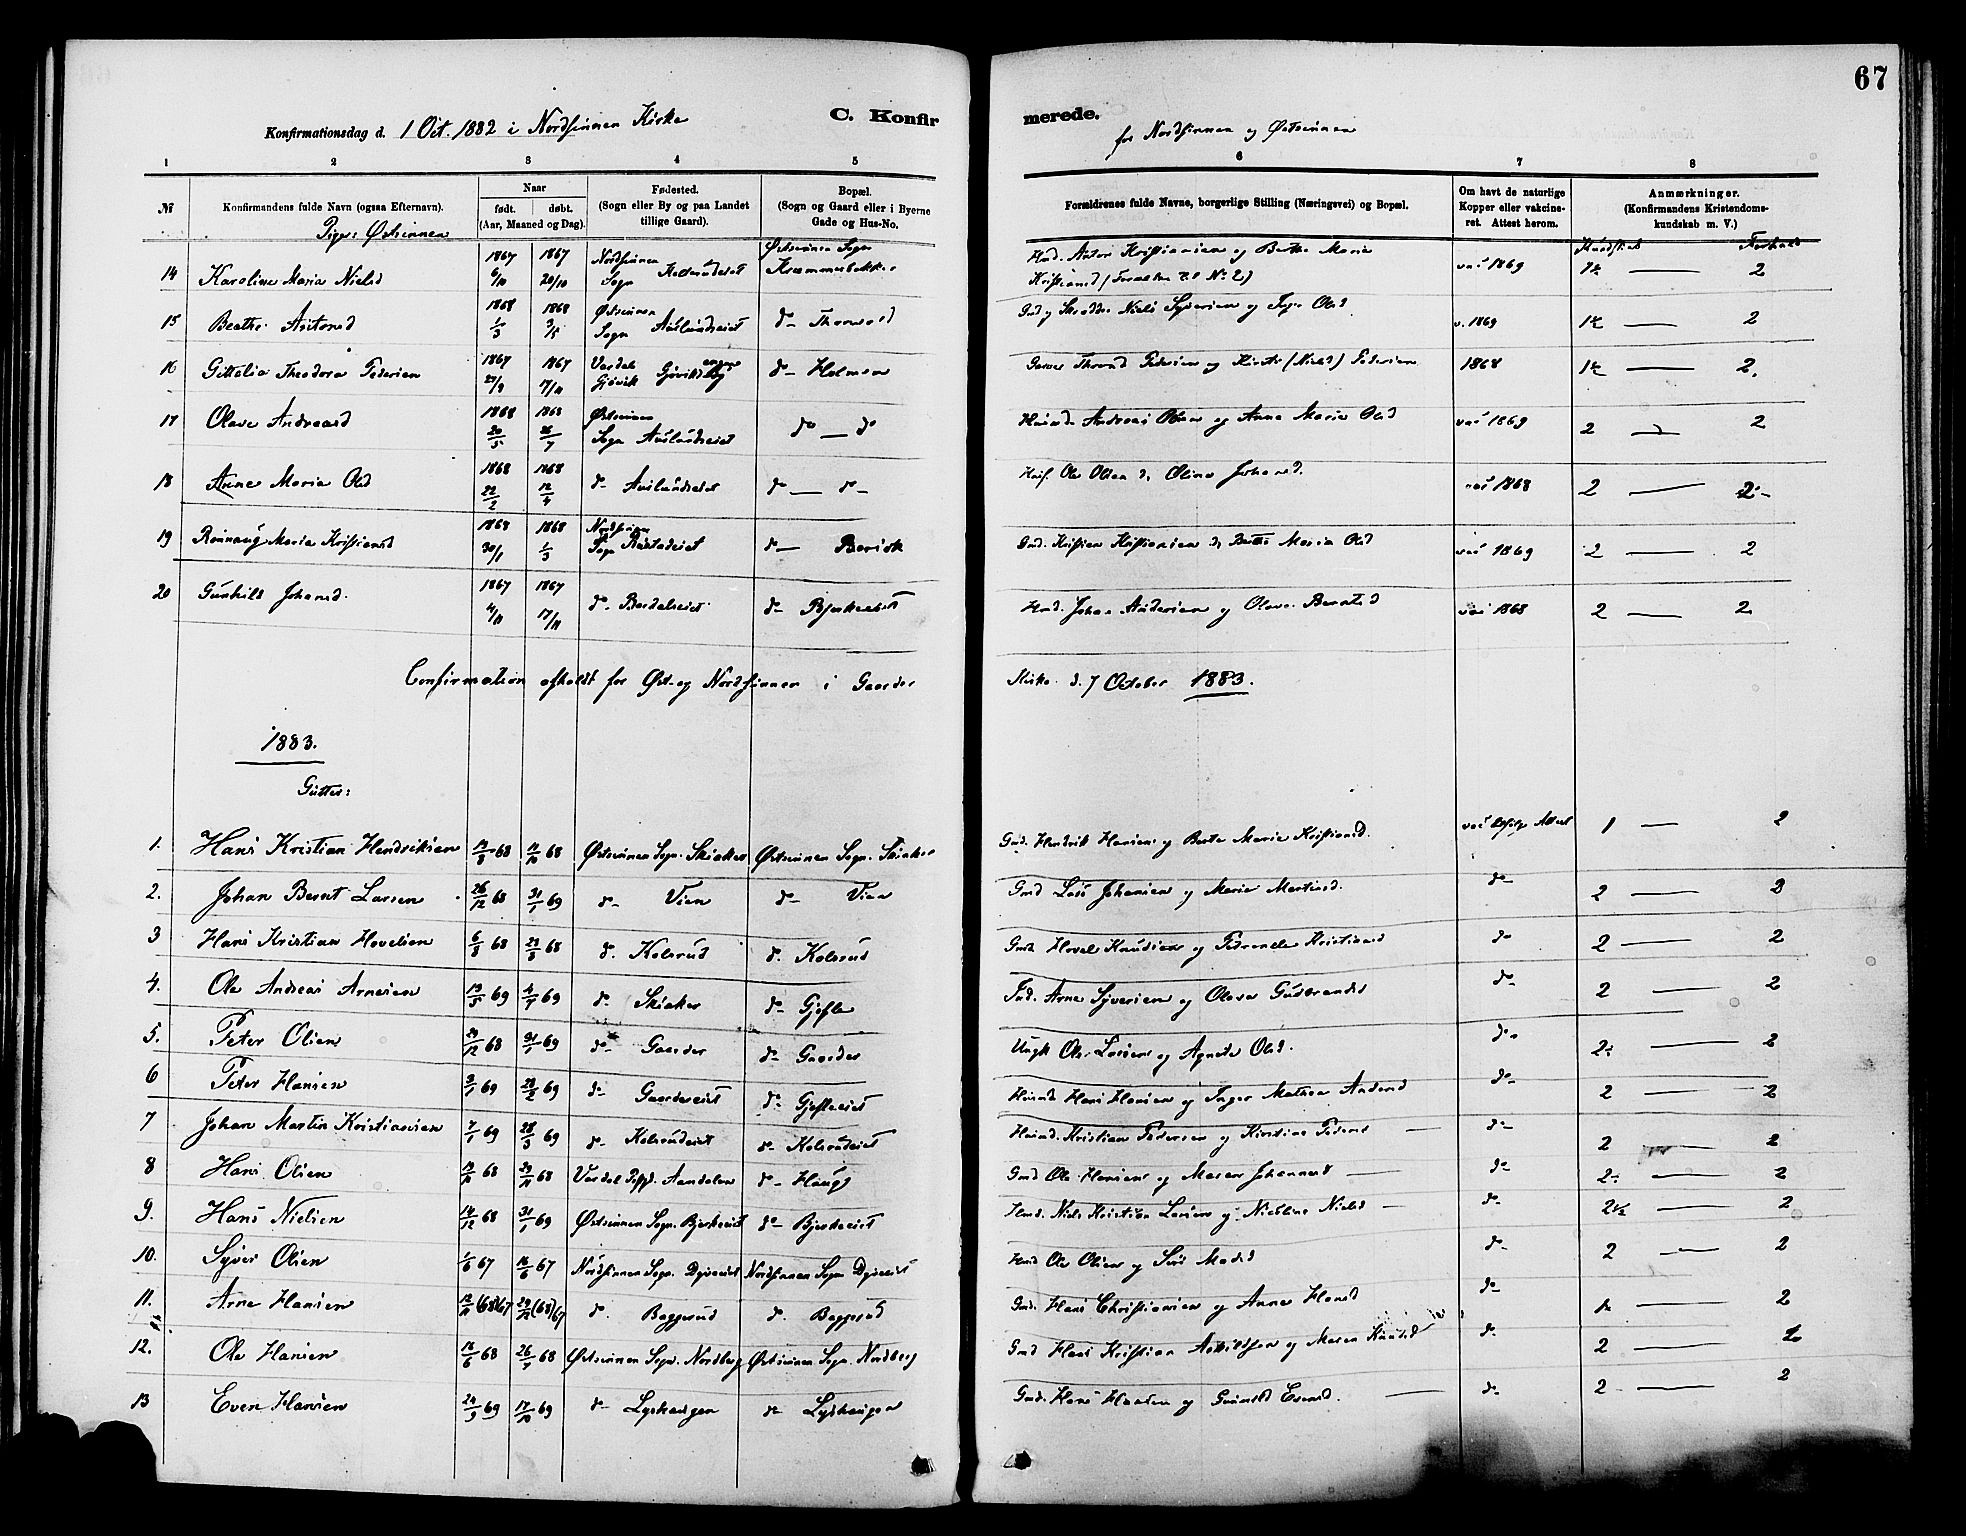 67
Konfirmationsdag d. 1 Oct. 1882 i Nordsinnen Kirke
C. Konfir merede.
for Nordsinnen og Østsinnen
1 2 3 4 5 6 7 8
№ Konfirmandens fulde Navn (ogsaa Efternavn). Naar født. døbt. (Aar, Maaned og Dag). Fødested. (Sogn eller By og paa Landet tillige Gaard). Bopæl. (Sogn og Gaard eller i Byerne Gade og Hus-No. Forældrenes fulde Navne, borgerlige Stilling (Næringsvei) og Bopæl. Om havt de naturlige Kopper eller vakcineret. Attest herom. Anmærkninger. (Konfirmandens Kristendomskundskab m. V.)
Piger: Østsinnen
Kundskab Forhold
14 Karoline Maria Nielsd 1867 6/10 1867 20/10 Nordsinnen Sogn Østsinnen Sogn vac 1869 2
15 Beathe Antonsd 1868 1868 3/5 Østsinnen Sogn Auslundseiet d- Gmd og Skrædder Niels Syversen og Inger Olsd v. 1869 2
16 Gittelia Theodora Pedersen 1867 1867 7/11 Vardal Gjøvik d- Holmen Garver Thorvald Pedersen og Kirsti (Nielsd) Pedersen 1868 2
17 Olave Andreasd 1868 20/5 1868 26/7 Østsinnen Sogn Auslundseiet d- d Andreas Olsen og Anne Maria Olsd vac 1869 2 2
18 Anne Maria Olsd 1868 22/2 1868 12/4 d- Auslundseiet d- d- Ole Olsen og Oline Johansd. vac 1868 2 2-
19 Rønnaug Maria Kristiansd 1868 30/1 1868 1/3 Nordsinnen Sogn d- Gmd. Kristian Kristiansen og Berthe Maria Olsd vac 1869 2 2
20 Gunhild Johansd. 1867 4/11 1867 17/11 d- d- Bjerkeeiet Hmd. Johan Andersen og Olave Berntsd vac 1868 2 2
Confirmation afholdt for Øst- og Nordsinnen i Gaarder Kirke d. 7 October 1883.
1883.
Gutter:
1. Hans Kristian Hendriksen 19/8 68 11/10 68 Østsinnen Sogn. Skiaker Østsinnen Sogn. Skiaker Gmd. Hendrik Hansen og Berte Maria Kristiansd. vac ifølge Attest 1 2
2. Johan Bernt Larsen 26/12 68 31/1 69 d- Vien d- Vien Gmd Lars Johansen og Maria Martinsd. d- 2 2
3 Hans Kristian Hovelsen 6/8 68 68 d. Kolsrud d. Kolsrud Gmd Hovel Knudsen og Petronelle Kristiansd d- 2 2
4. Ole Andreas Arnesen 19/5 69 4/7 69 d- Skiaker d- Gjefle Arne Syversen og Olava Gudbrandsd d- 2 2
5. Peter Olsen 29/12 68 31/1 69 d- Gaarder d- Gaarder Ungk Ole Larsen og Agnete Olsd. d- 2- 2
6 Peter Hansen 3/1 69 28/2 69 d- Gaardereiet d- Gjefleeiet Husmd Hans Hansen og Inger Mathea Andersd d- 2 2
7 Johan Martin Kristiansen 7/1 69 28/3 69 d- Kolsrudeiet d- Kolsrudeiet Husmd. Kristian Pedersen og Kirstine Pedersd d- 2 2
8 Hans Olsen 68 29/11 68 Vardal Pgd. Aandalen d- Haugs Gmd Ole Hansen og Maren Johannesd d- 2- 2
9. Hans Nielsen 14/12 68 31/1 69 Østsinnen Sogn. Bjerkeeiet d- Bjerkeeiet Hmd. Niels Kristian Larsen og Nicoline Nielsd d- 2½ 2
10. Syver Olsen 1/6 67 16/6 67 Nordsinnen Sogn. Nordsinnen Sogn Hmd Ole Olsen og Siri Madsd d- 2 2
11. Arne Hansen (68) 67 (68) 67 d. Baggerud d. Baggerud Gmd. Hans Christiansen og Anne Hansd d- 2
12. Ole Hansen 68 26/7 68 Østsinnen Sogn. Nordberg Østsinnen Sogn. Nordberg Gmd Hans Kristian og Maren Knudsd d- 2
13 Even Hansen 69 17/10 69 d- Lyshaugen d- Lyshaugen Gmd. Hans og Gunhild Evensd. d- 2 2